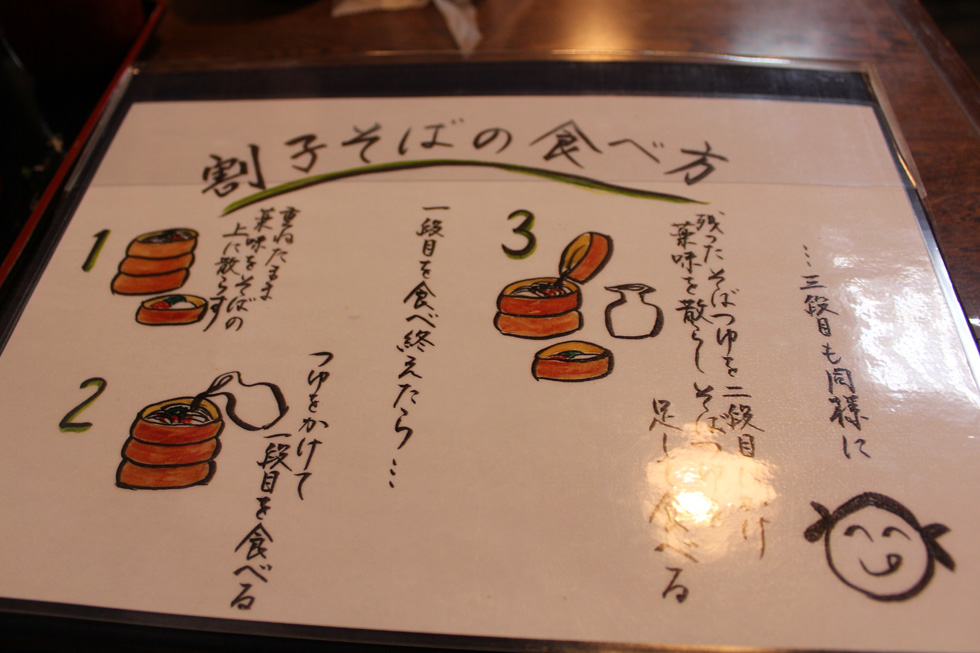 割子そばの食べ方
1
重ねたまま
薬味をそばの
上に散らす
2
つゆをかけて
一段目を食べる
一段目を食べ終えたら…
3
残ったそばつゆを二段目 け
薬味を散らしそばつ
足し 食べる
…三段目も同様に